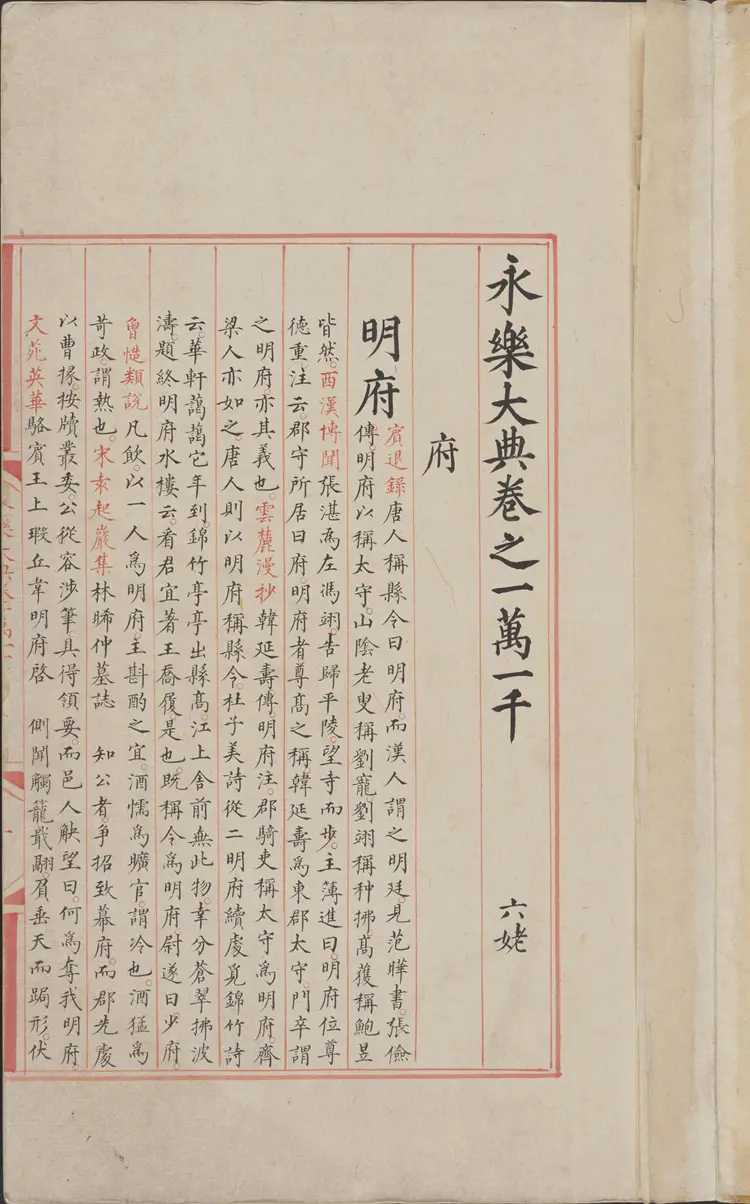 永樂大典卷之一萬一千 六姥
府
明府
賓退錄唐人稱縣令曰明府。而漢人謂之明廷。見范曄書。張儉
傳。明府以稱太守。山陰老叟稱劉寵。劉翊稱种拂。高獲稱鮑昱
皆然。西漢博聞張湛爲左馮翊。告歸平陵。望寺而步。主簿進曰。明府位尊
德重。注云。郡守所居曰府。明府者尊高之稱。韓延壽爲東郡太守。門卒謂
之明府亦其義也。雲麓漫抄韓延壽傳。明府注。郡騎吏稱太守爲明府。齊
梁人亦如之。唐人則以明府稱縣令。杜子美詩從二明府續處覓錦竹詩
云。華軒藹藹它年到。錦竹亭亭出縣高。江上舍前無此物。幸分蒼翠拂波
濤。題終明府水樓云。看君宜著王喬履是也。既稱令爲明府尉遂曰少府。
曾慥類說凡飲。以一人爲明府。主斟酌之宜。酒懦爲曠官。謂冷也。酒猛爲
苛政。謂熱也。宋袁起巖集林晞仲墓誌 知公者。爭招致幕府。而郡先處
以曹掾。按牘叢委。公從容涉筆。具得領要。而邑人觖望曰。何爲奪我明府。
文苑英華駱賓王上瑕丘韋明府啓 側聞觸籠戢翮。負垂天而跼形。伏